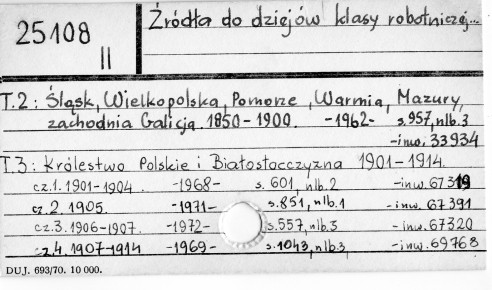 25108
II
Źródła do dziejów klasy robotniczej...
T.2: Śląsk, Wielkopolska, Pomorze, Warmia, Mazury,
zachodnia Galicja. 1850-1900. -1962- s.957, nlb.3
-inw. 33934
T.3: Królestwo Polskie i Białostocczyzna 1901-1914.
cz.1. 1901-1904. -1968- s. 601, nlb.2 -inw. 67319
cz.2. 1905. -1971- s.851, nlb.1 -inw. 67391
cz.3. 1906-1907. -1972- s.557, nlb.3 -inw. 67320
cz.4. 1907-1914 -1969- s.1043, nlb.3, -inw. 69768
DUJ. 693/70. 10 000.